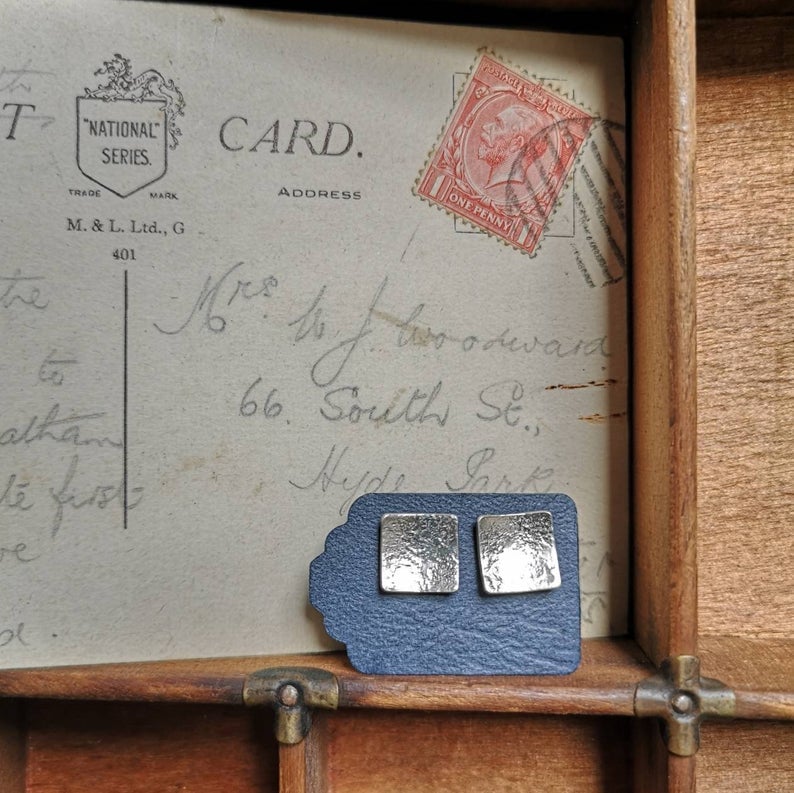 T CARD.
"NATIONAL"
SERIES.
TRADE MARK
ADDRESS
M. & L. Ltd., G
401
POSTAGE
ONE PENNY
1 1
the
to
Mrs W J Woodward
66. South St.,
Hyde Park
first